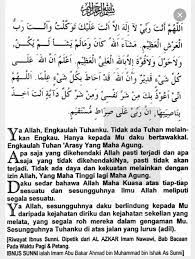 بسم الله الرحمن الرحيم
اللَّهُمَّ أَنْتَ رَبِّيْ لَا إِلٰهَ إِلَّا أَنْتَ عَلَيْكَ تَوَكَّلْتُ وَأَنْتَ رَبُّ
الْعَرْشِ الْعَظِيْمِ. مَاشَاءَ اللهُ كَانَ وَمَالَمْ يَشَأْ لَمْ يَكُنْ.
وَلَاحَوْلَ وَلَاقُوَّةَ إِلَّا بِاللهِ الْعَلِيِّ الْعَظِيْمِ. أَعْلَمُ أَنَّ اللهَ
عَلَى كُلِّ شَيْءٍ قَدِيْرٌ. وَأَنَّ اللهَ قَدْ أَحَاطَ بِكُلِّ شَيْءٍ عِلْمًا. اللَّهُمَّ
إِنِّيْ أَعُوْذُ بِكَ مِنْ شَرِّ نَفْسِيْ وَمِنْ شَرِّ كُلِّ دَابَّةٍ أَنْتَ آخِذٌ
بِنَاصِيَتِهَا. إِنَّ رَبِّيْ عَلَى صِرَاطٍ مُسْتَقِيْمٍ
Ya Allah, Engkaulah Tuhanku. Tidak ada Tuhan melain-
kan Engkau. Hanya kepada Mu daku bertawakkal.
Engkaulah Tuhan 'Arasy Yang Maha Agung.
Apa saja yang dikehendaki Allah pasti terjadi dan apa
saja yang tidak dikehendakiNya, pasti tidak akan
terjadi. Tidak ada daya dan kekuatan melainkan dengan
izin Allah, Yang Maha Tinggi lagi Maha Agung.
Daku sedar bahawa Allah Maha Kuasa atas tiap-tiap
sesuatu dan sesungguhnya Ilmu Allah meliputi
segala sesuatu.
Ya Allah, sesungguhnya daku berlindung kepada Mu
daripada kejahatan diriku dan kejahatan sekelian yang
melata, yang mana roh mereka dalam genggaman Mu.
Sesungguhnya Tuhanku di atas jalan yang lurus (adil).
[Riwayat Ibnus Sunni. Dipetik dari AL AZKAR Imam Nawawi, Bab Bacaan
Pada Waktu Pagi & Petang.
IBNUS SUNNI ialah Imam Abu Bakar Ahmad bin Muhammad bin Ishak As Sunni]